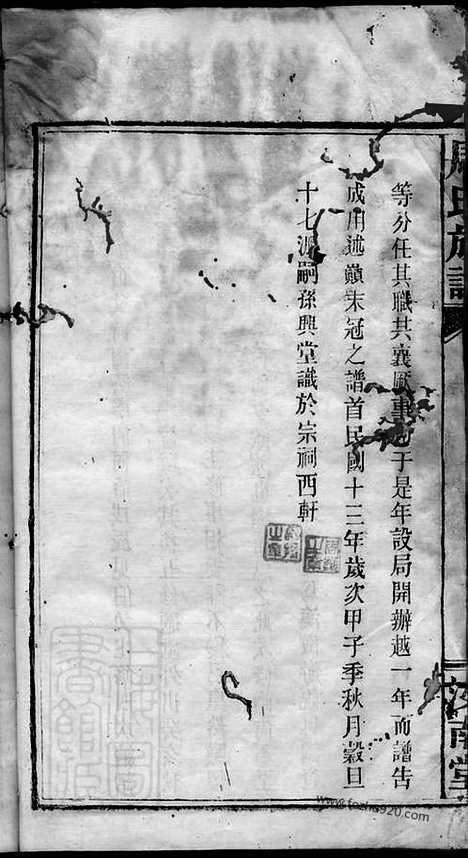 周氏族譜
汝南堂
等分任其職共襄厥事于是年設局開辦越一年而譜告
成用述巔末冠之譜首民國十三年歲次甲子季秋月穀旦
十七派嗣孫興堂識於宗祠西軒
www.fozhu920.com